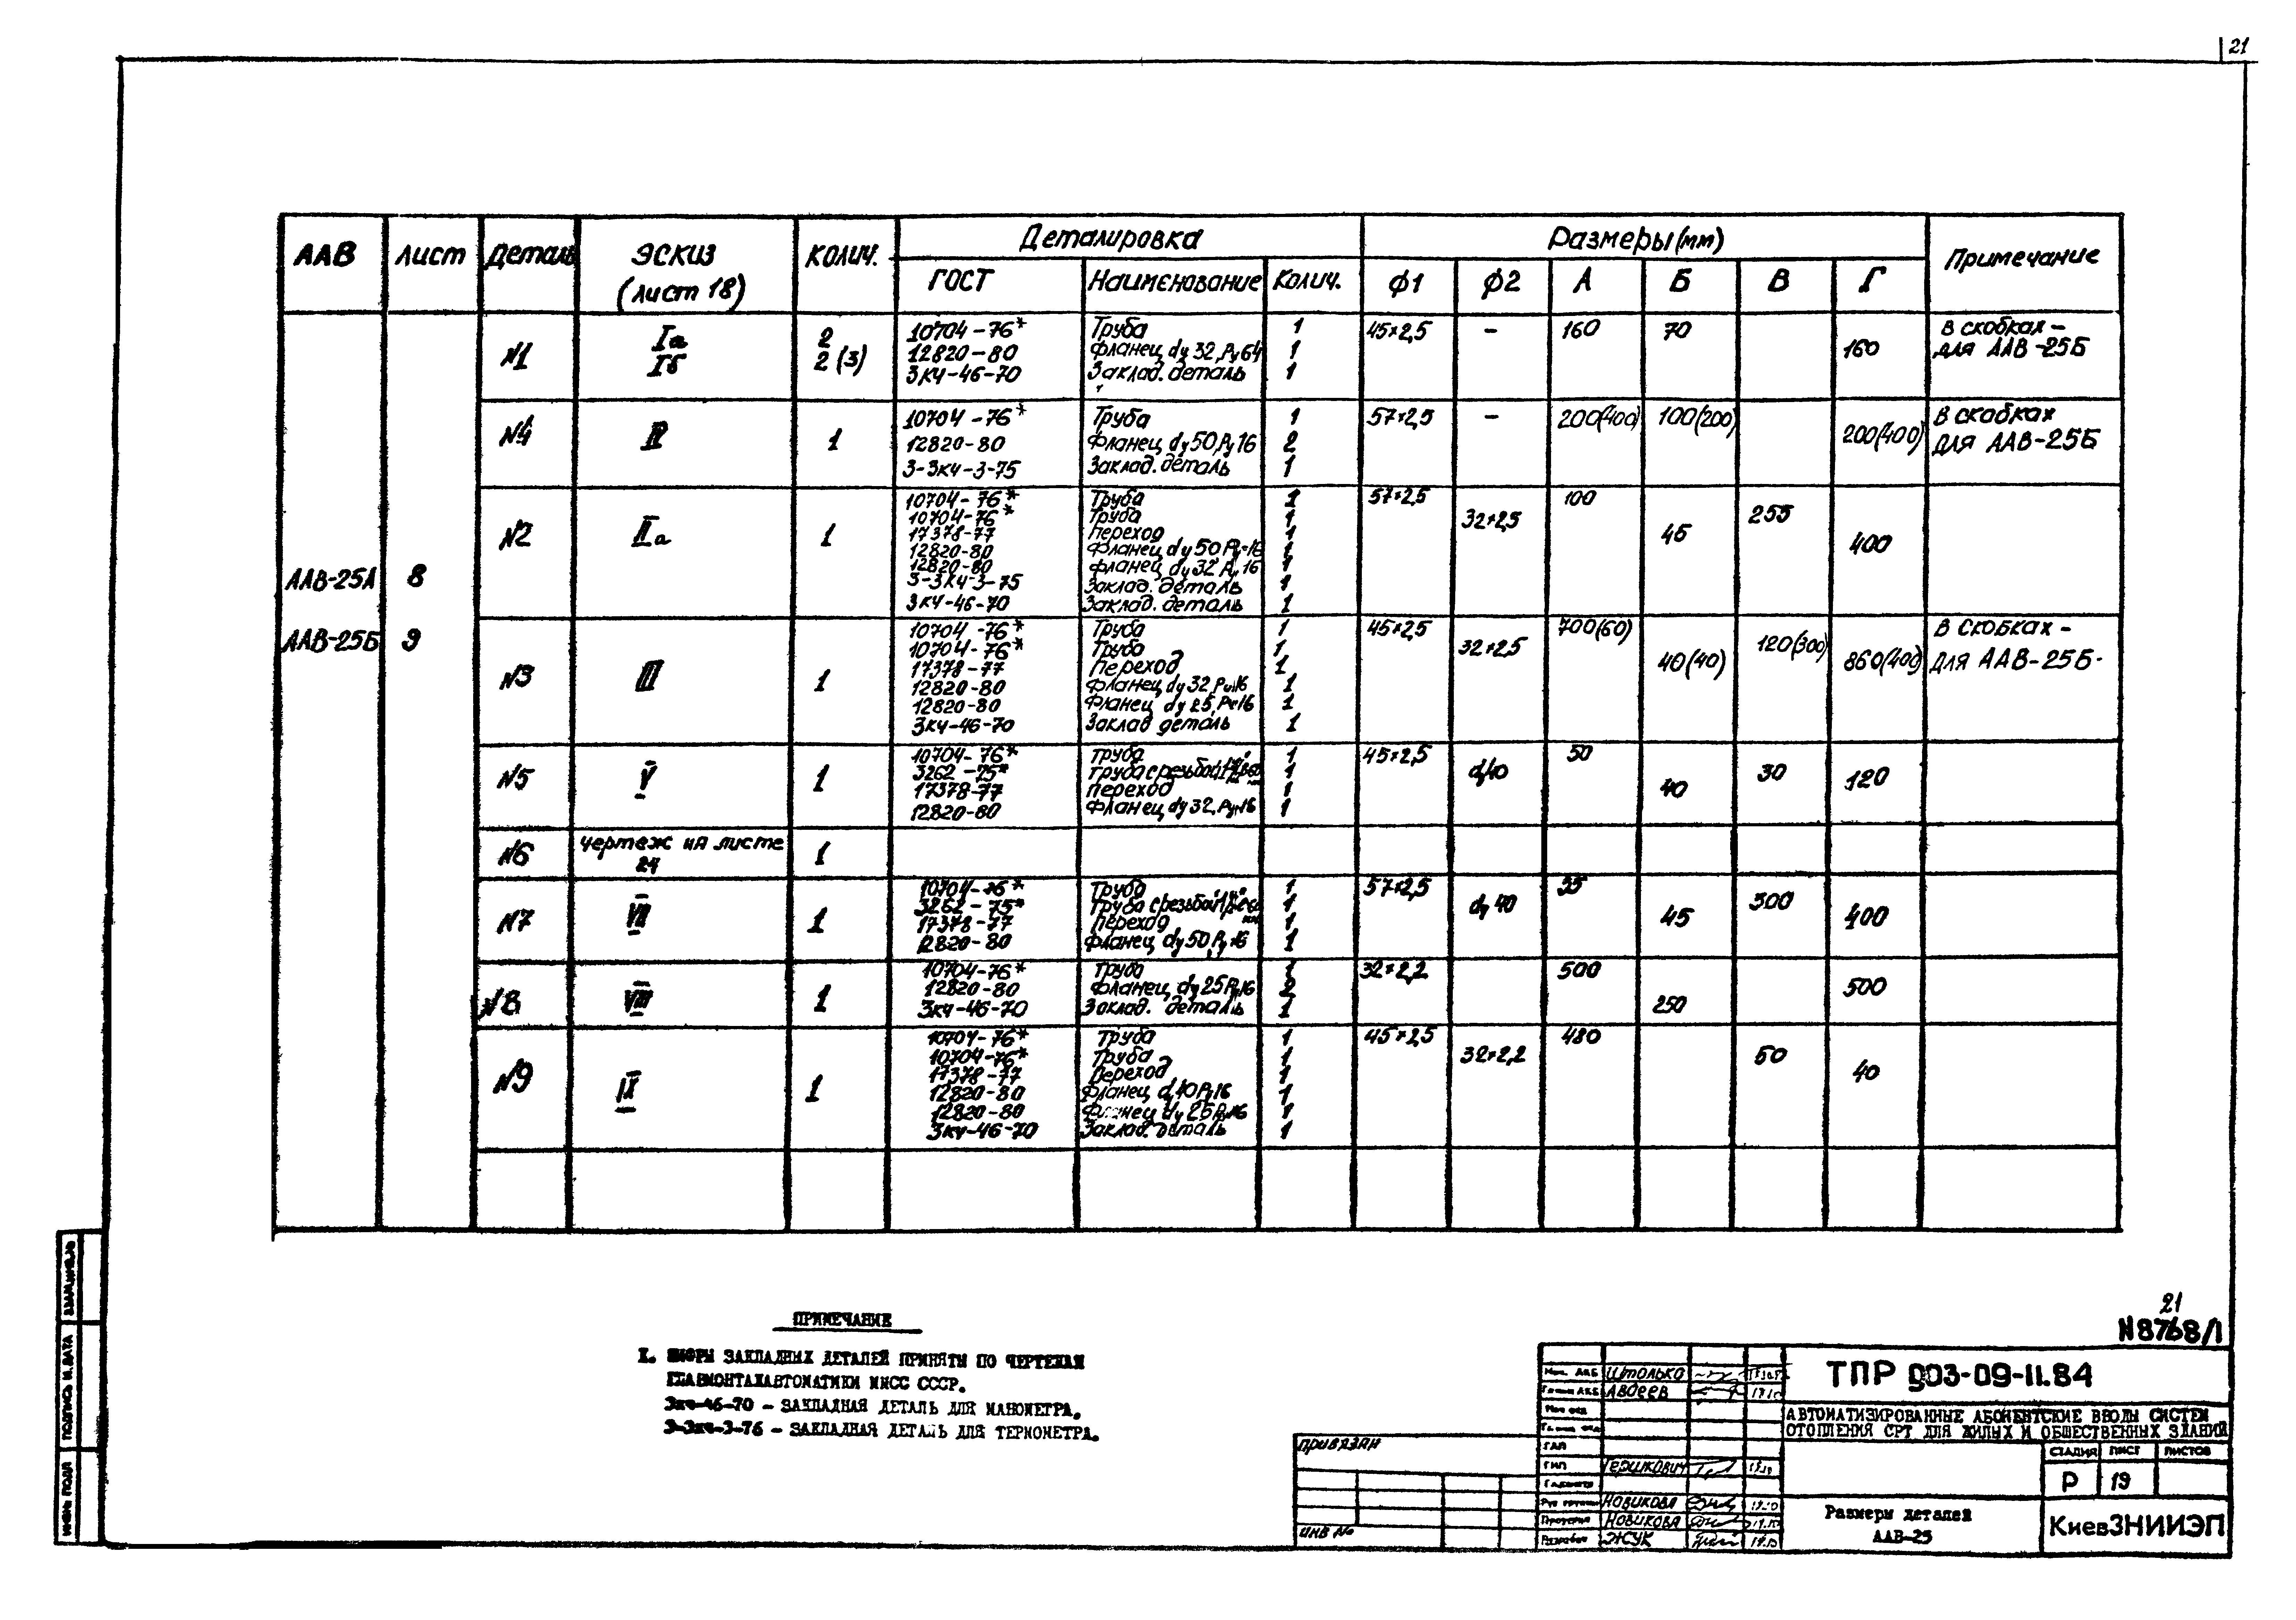 21
ААВ Лист Деталь ЭСКИЗ (лист 18) КОЛИЧ. Деталировка Размеры(мм) Примечание
ГОСТ Наименование Колич. ф1 ф2 А Б В Г
ААВ-25А 8
ААВ-25Б 9
N1 Iа Iб 2 2(3)
10704-76* Труба 1 45×2,5 – 160 70 160 В скобках –
12820-80 Фланец dу 32, Ру64 1 для ААВ-25Б
ЗКЧ-46-70 Заклад. деталь 1
N4 IV 1
10704-76* Труба 1 57×2,5 – 200(400) 100(200) 200(400) В скобках
12820-80 Фланец dу50, Ру16 2 для ААВ-25Б
3-ЗКЧ-3-75 Заклад. деталь 1
N2 IIа 1
10704-76* Труба 1 57×2,5 100
10704-76* Труба 1 32×2,5 45 255 400
17378-77 Переход 1
12820-80 Фланец dу50 Ру-16 1
12820-80 Фланец dу32 Ру 16 1
3-ЗКЧ-3-75 Заклад. деталь 1
ЗКЧ-46-70 Заклад. деталь 1
N3 III 1
10704-76* Труба 1 45×2,5 700(60) В СКОБКАХ –
10704-76* Труба 1 32×2,5 40(40) 120(300) 860(400) для ААВ-25Б.
17378-77 Переход 1
12820-80 Фланец dу 32, Ру16 1
12820-80 Фланец dу 25, Ру16 1
ЗКЧ-46-70 Заклад деталь 1
N5 V 1
10704-76* Труба 1 45×2,5 50
3262-75* Труба с резьбой 1 dу40 40 30 120
17378-77 Переход 1
12820-80 Фланец dу 32, Ру16 1
N6 чертеж на листе 24 1
N7 VII 1
10704-76* Труба 1 57×2,5 55
3262-75* Труба с резьбой 1 dу 40 45 300 400
17378-77 Переход 1
12820-80 Фланец dу50, Ру16 1
N8 VIII 1
10704-76* Труба 1 32×2,2 500
12820-80 Фланец dу25 Ру16 2 500
ЗКЧ-46-70 Заклад. деталь 1 250
N9 IX 1
10704-76* Труба 1 45×2,5 480
10704-76* Труба 1 32×2,2 50 40
17378-77 Переход 1
12820-80 Фланец dу40 Ру16 1
12820-80 Фланец dу 25 Ру16 1
ЗКЧ-46-70 Заклад. деталь 1
ПРИМЕЧАНИЕ
I. ШИФРЫ ЗАКЛАДНЫХ ДЕТАЛЕЙ ПРИНЯТЫ ПО ЧЕРТЕЖАМ
ГЛАВМОНТАЖАВТОМАТИКИ ММСС СССР.
Зкч-46-70 – ЗАКЛАДНАЯ ДЕТАЛЬ ДЛЯ МАНОМЕТРА.
3-Зкч-3-76 – ЗАКЛАДНАЯ ДЕТАЛЬ ДЛЯ ТЕРМОМЕТРА.
21
N8768/1
ТПР 903-09-11.84
АВТОМАТИЗИРОВАННЫЕ АБОНЕНТСКИЕ ВВОДЫ СИСТЕМ
ОТОПЛЕНИЯ СРТ ДЛЯ ЖИЛЫХ И ОБЩЕСТВЕННЫХ ЗДАНИЙ
СТАДИЯ ЛИСТ ЛИСТОВ
Р 19
Размеры деталей
ААВ-25
КиевЗНИИЭП
Нач. АКБ Штолько
АКБ Авдеев
ГАП
ГИП Гершкович
Рук группы Новикова
Проверил Новикова
Разработ Жук
ПРИВЯЗАН
ИНВ №
ВЗАМ.ИНВ.№
ПОДПИСЬ И ДАТА
ИНВ№ ПОДЛ